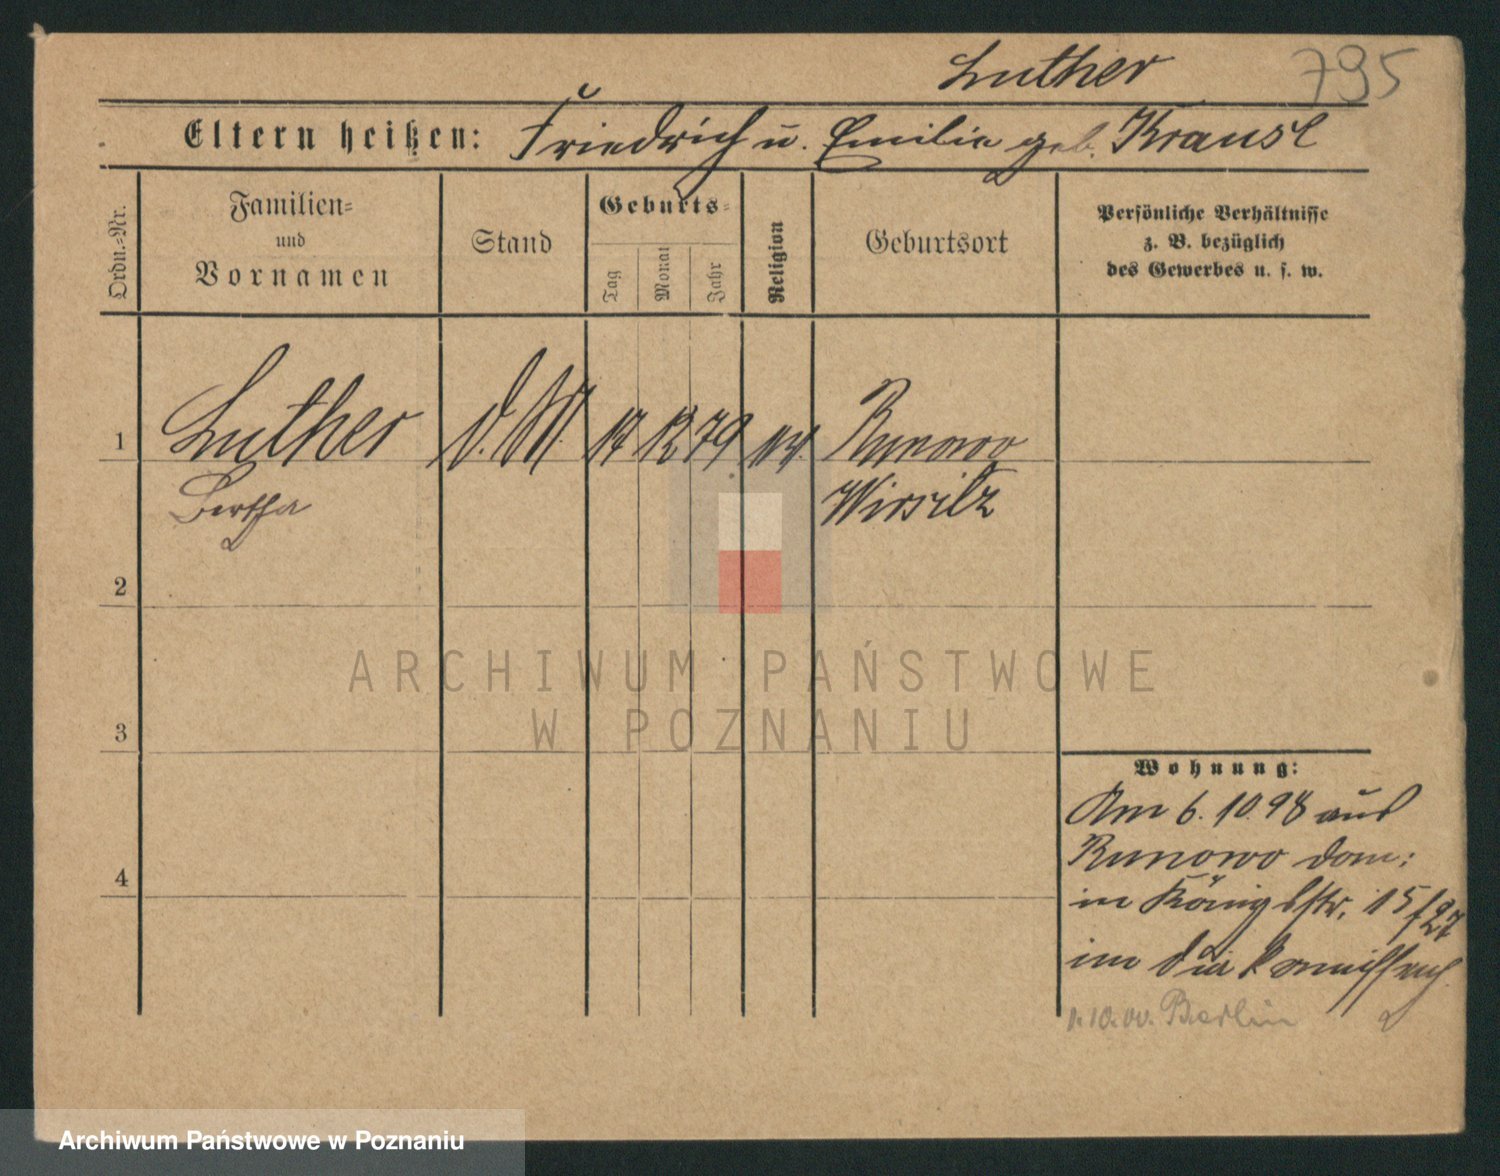 Luther 795
Eltern heißen: Friedrich u. Emilie geb. Krause
Ordn.-Nr.
Familien-
und
Vornamen
Stand
Geburts-
Tag
Monat
Jahr
Religion
Geburtsort
Persönliche Verhältnisse
z. B. bezüglich
des Gewerbes u. s. w.
1 Luther d. M. 17 12 79 ev. Runowo
Bertha Wirsitz
2
ARCHIWUM PAŃSTWOWE
W POZNANIU
3
Wohnung:
Am 6. 10. 98 aus
Runowo dom:
4
in Königsstr. 15
im
1. 10. 00. Berlin
Archiwum Państwowe w Poznaniu